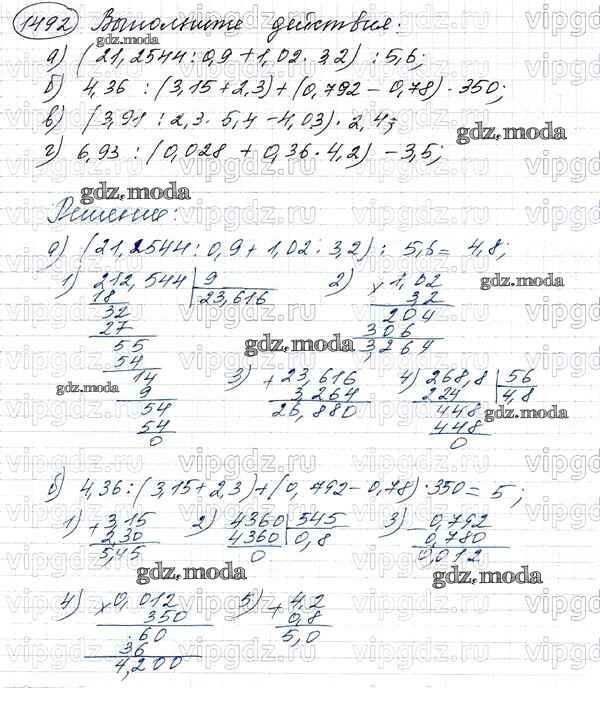 1492 Выполните действия:
а) (21,2544 : 0,9 + 1,02 · 3,2) : 5,6;
б) 4,36 : (3,15 + 2,3) + (0,792 − 0,78) · 350;
в) (3,91 : 2,3 · 5,4 − 4,03) · 2,4;
г) 6,93 : (0,028 + 0,36 · 4,2) − 3,5;
Решение:
а) (21,2544 : 0,9 + 1,02 · 3,2) : 5,6 = 4,8;
1) 212,544 | 9
18 23,616
32
27
55
54
14
9
54
54
0
2) × 1,02
3,2
204
306
3,264
3) + 23,616
3,264
26,880
4) 268,8 | 56
224 4,8
448
448
0
б) 4,36 : (3,15 + 2,3) + (0,792 − 0,78) · 350 = 5;
1) + 3,15
2,30
5,45
2) 4360 | 545
4360 0,8
0
3) − 0,792
0,780
0,012
4) × 0,012
350
60
36
4,200
5) + 4,2
0,8
5,0
gdz.moda
vipgdz.ru